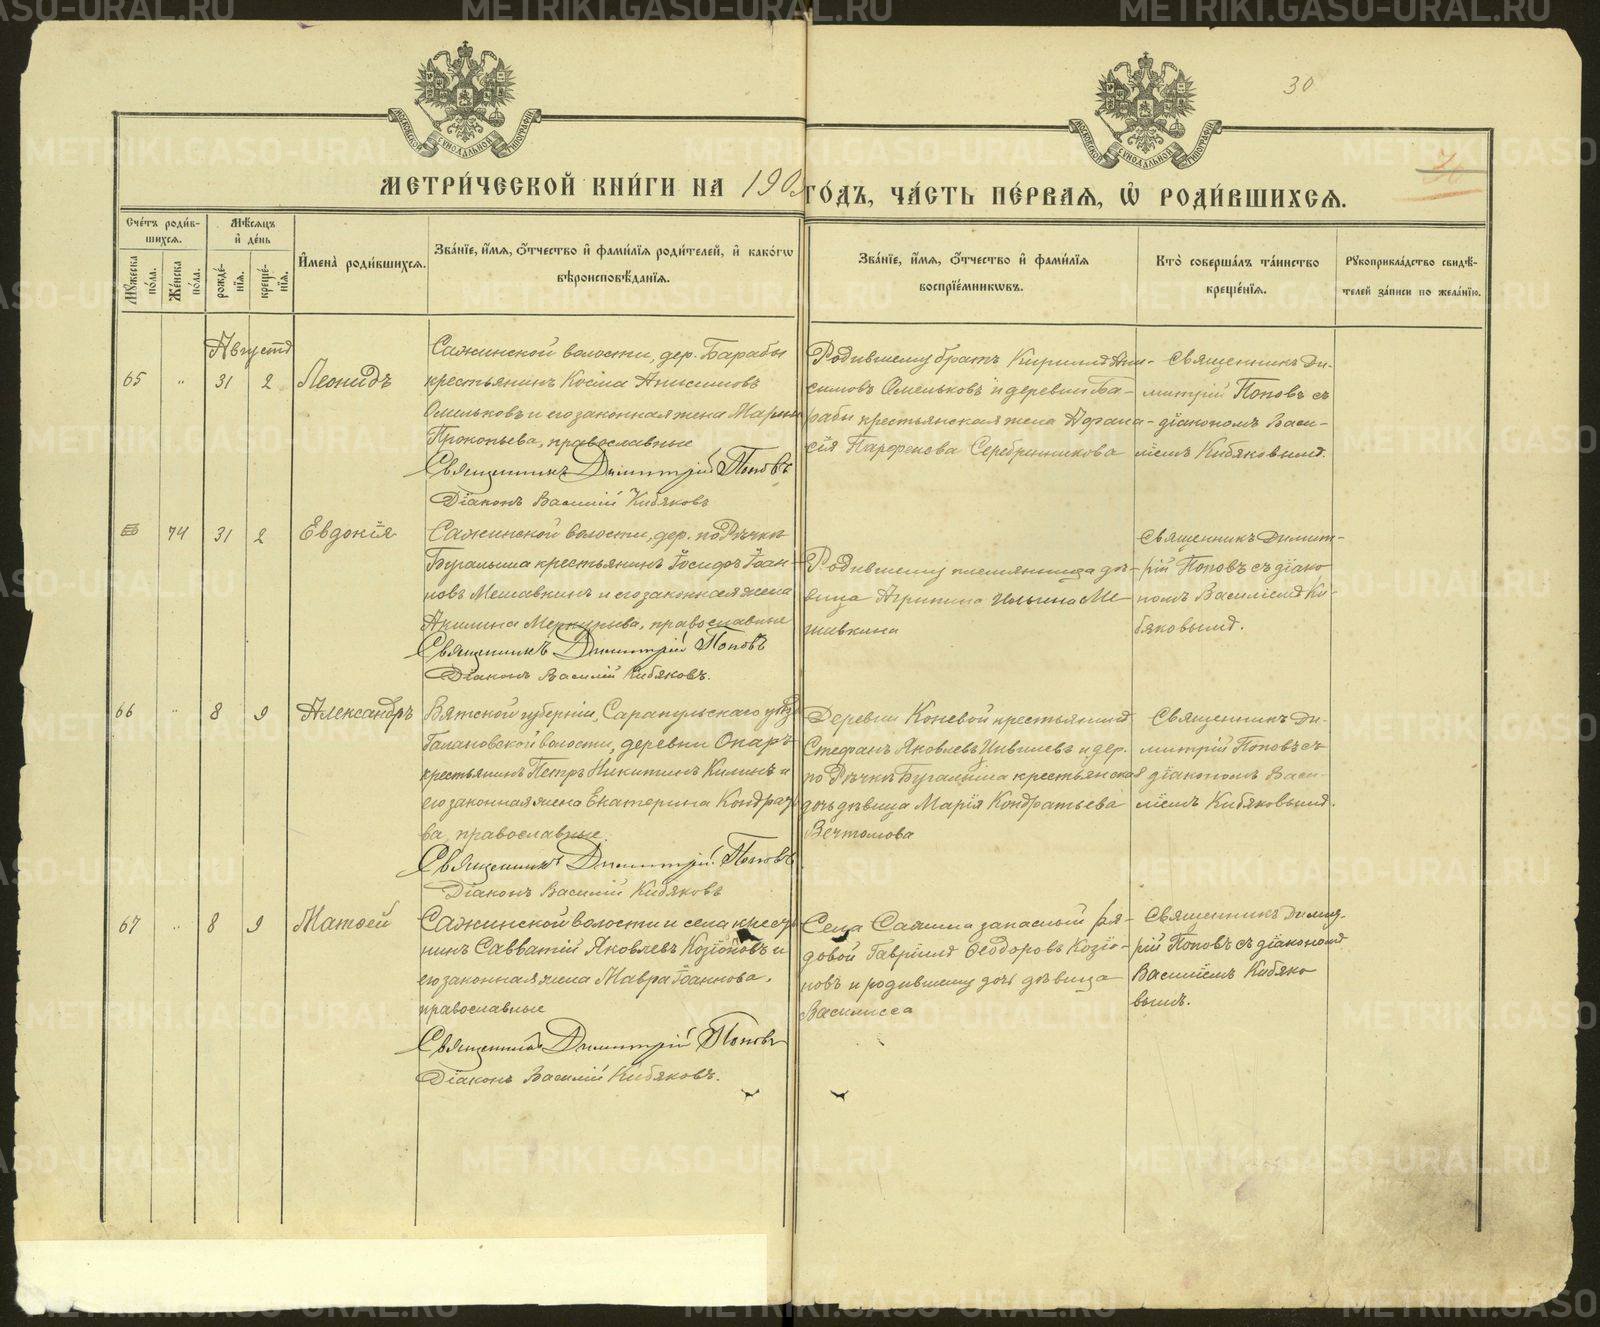 30
МОСКОВСКОЙ СѴНОДАЛЬНОЙ ТИПОГРАФІИ
МОСКОВСКОЙ СѴНОДАЛЬНОЙ ТИПОГРАФІИ
МЕТРИ́ЧЕСКОЙ КНИ́ГИ НА 190 ГО́ДЪ, ЧА́СТЬ ПЕ́РВАЯ, Ѡ҆ РОДИ́ВШИХСЯ.
Сче́тъ роди́вшихся.
Мѣ́сяцъ и҆ де́нь
Мꙋ́жеска по́ла.
Же́нска по́ла.
рожде́нїя.
креще́нїя.
И҆мена̀ роди́вшихся.
Зва́нїе, и҆́мя, ѻ҆́тчество и҆ фами́лїя роди́телей, и҆ како́гѡ вѣроисповѣ́данїя.
Зва́нїе, и҆́мя, ѻ҆́тчество и҆ фами́лїя воспрїе́мникѡвъ.
Кто̀ соверша́лъ та́инство креще́нїя.
Рꙋкоприкла́дство свидѣ́телей за́писи по жела́нїю.
Августа
65 " 31 2 Леонидъ
Сажинской волости, дер. Барабы
крестьянинъ Косма Анисимовъ
Омельковъ и его законная жена Марѳа
Прокопьева, православные
Священникъ Димитрій Поповъ
Діаконъ Василій Кибяковъ
Родившему братъ Кириллъ Ани-
симовъ Омельковъ и деревни Ба-
рабы крестьянская жена Афана-
сія Парфенова Серебренникова
Священникъ Ди-
митрій Поповъ съ
діакономъ Васи-
ліемъ Кибяковымъ.
74 31 2 Евдокія
Сажинской волости, дер. по Рѣчкѣ
Бугалышъ крестьянинъ Іосифъ Іоан-
новъ Мешавкинъ и его законная жена
Акилина Меркурьева, православные
Священникъ Димитрій Поповъ
Діаконъ Василій Кибяковъ.
Родившему племянница дѣ-
вица Агрипина Ильина Ме-
шавкина
Священникъ Димит-
рій Поповъ съ діако
номъ Василіемъ Ки-
бяковымъ.
66 " 8 9 Александръ
Вятской губерніи, Сарапульскаго уѣзда
волости, деревни
крестьянинъ Петръ Никитинъ Килинъ и
его законная жена Екатерина Кондрать
ва, православные.
Священникъ Димитрій Поповъ
Діаконъ Василій Кибяковъ
Деревни Коневой крестьянинъ
Стефанъ Яковлевъ и дер.
по Рѣчкѣ Бугалышъ крестьянская
дочь дѣвица Марія Кондратьева
Вечтомова
Священникъ Ди-
митрій Поповъ съ
діакономъ Васи-
ліемъ Кибяковымъ.
67 " 8 9 Матѳей
Сажинской волости и села кресть
нинъ Савватій Яковлевъ Козіоновъ и
его законная жена Мавра Іоаннова,
православные
Священникъ Димитрій Поповъ
Діаконъ Василій Кибяковъ.
Села Сажина запасный ря-
довой Гавріилъ Ѳеодоровъ Козіо-
новъ и родившему дочь дѣвица
Василисса
Священникъ Димит-
рій Поповъ съ діакономъ
Василіемъ Кибяко
вымъ.
METRIKI.GASO-URAL.RU